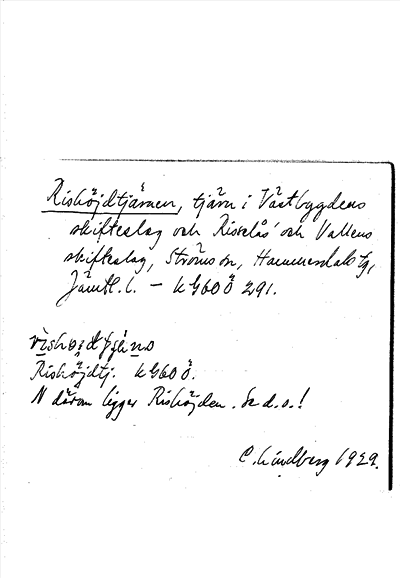 Rishöjdtjärnen, tjärn i Västbygdens
skifteslag och Risselås' och Vallens
skifteslag, Ströms sn, Hammerdals tg,
Jämtl. l. – kG60Ö 291.
Rishöjdtj. kG60Ö.
N därom ligger Rishöjden. Se d.o.!
C. Lindberg 1929.